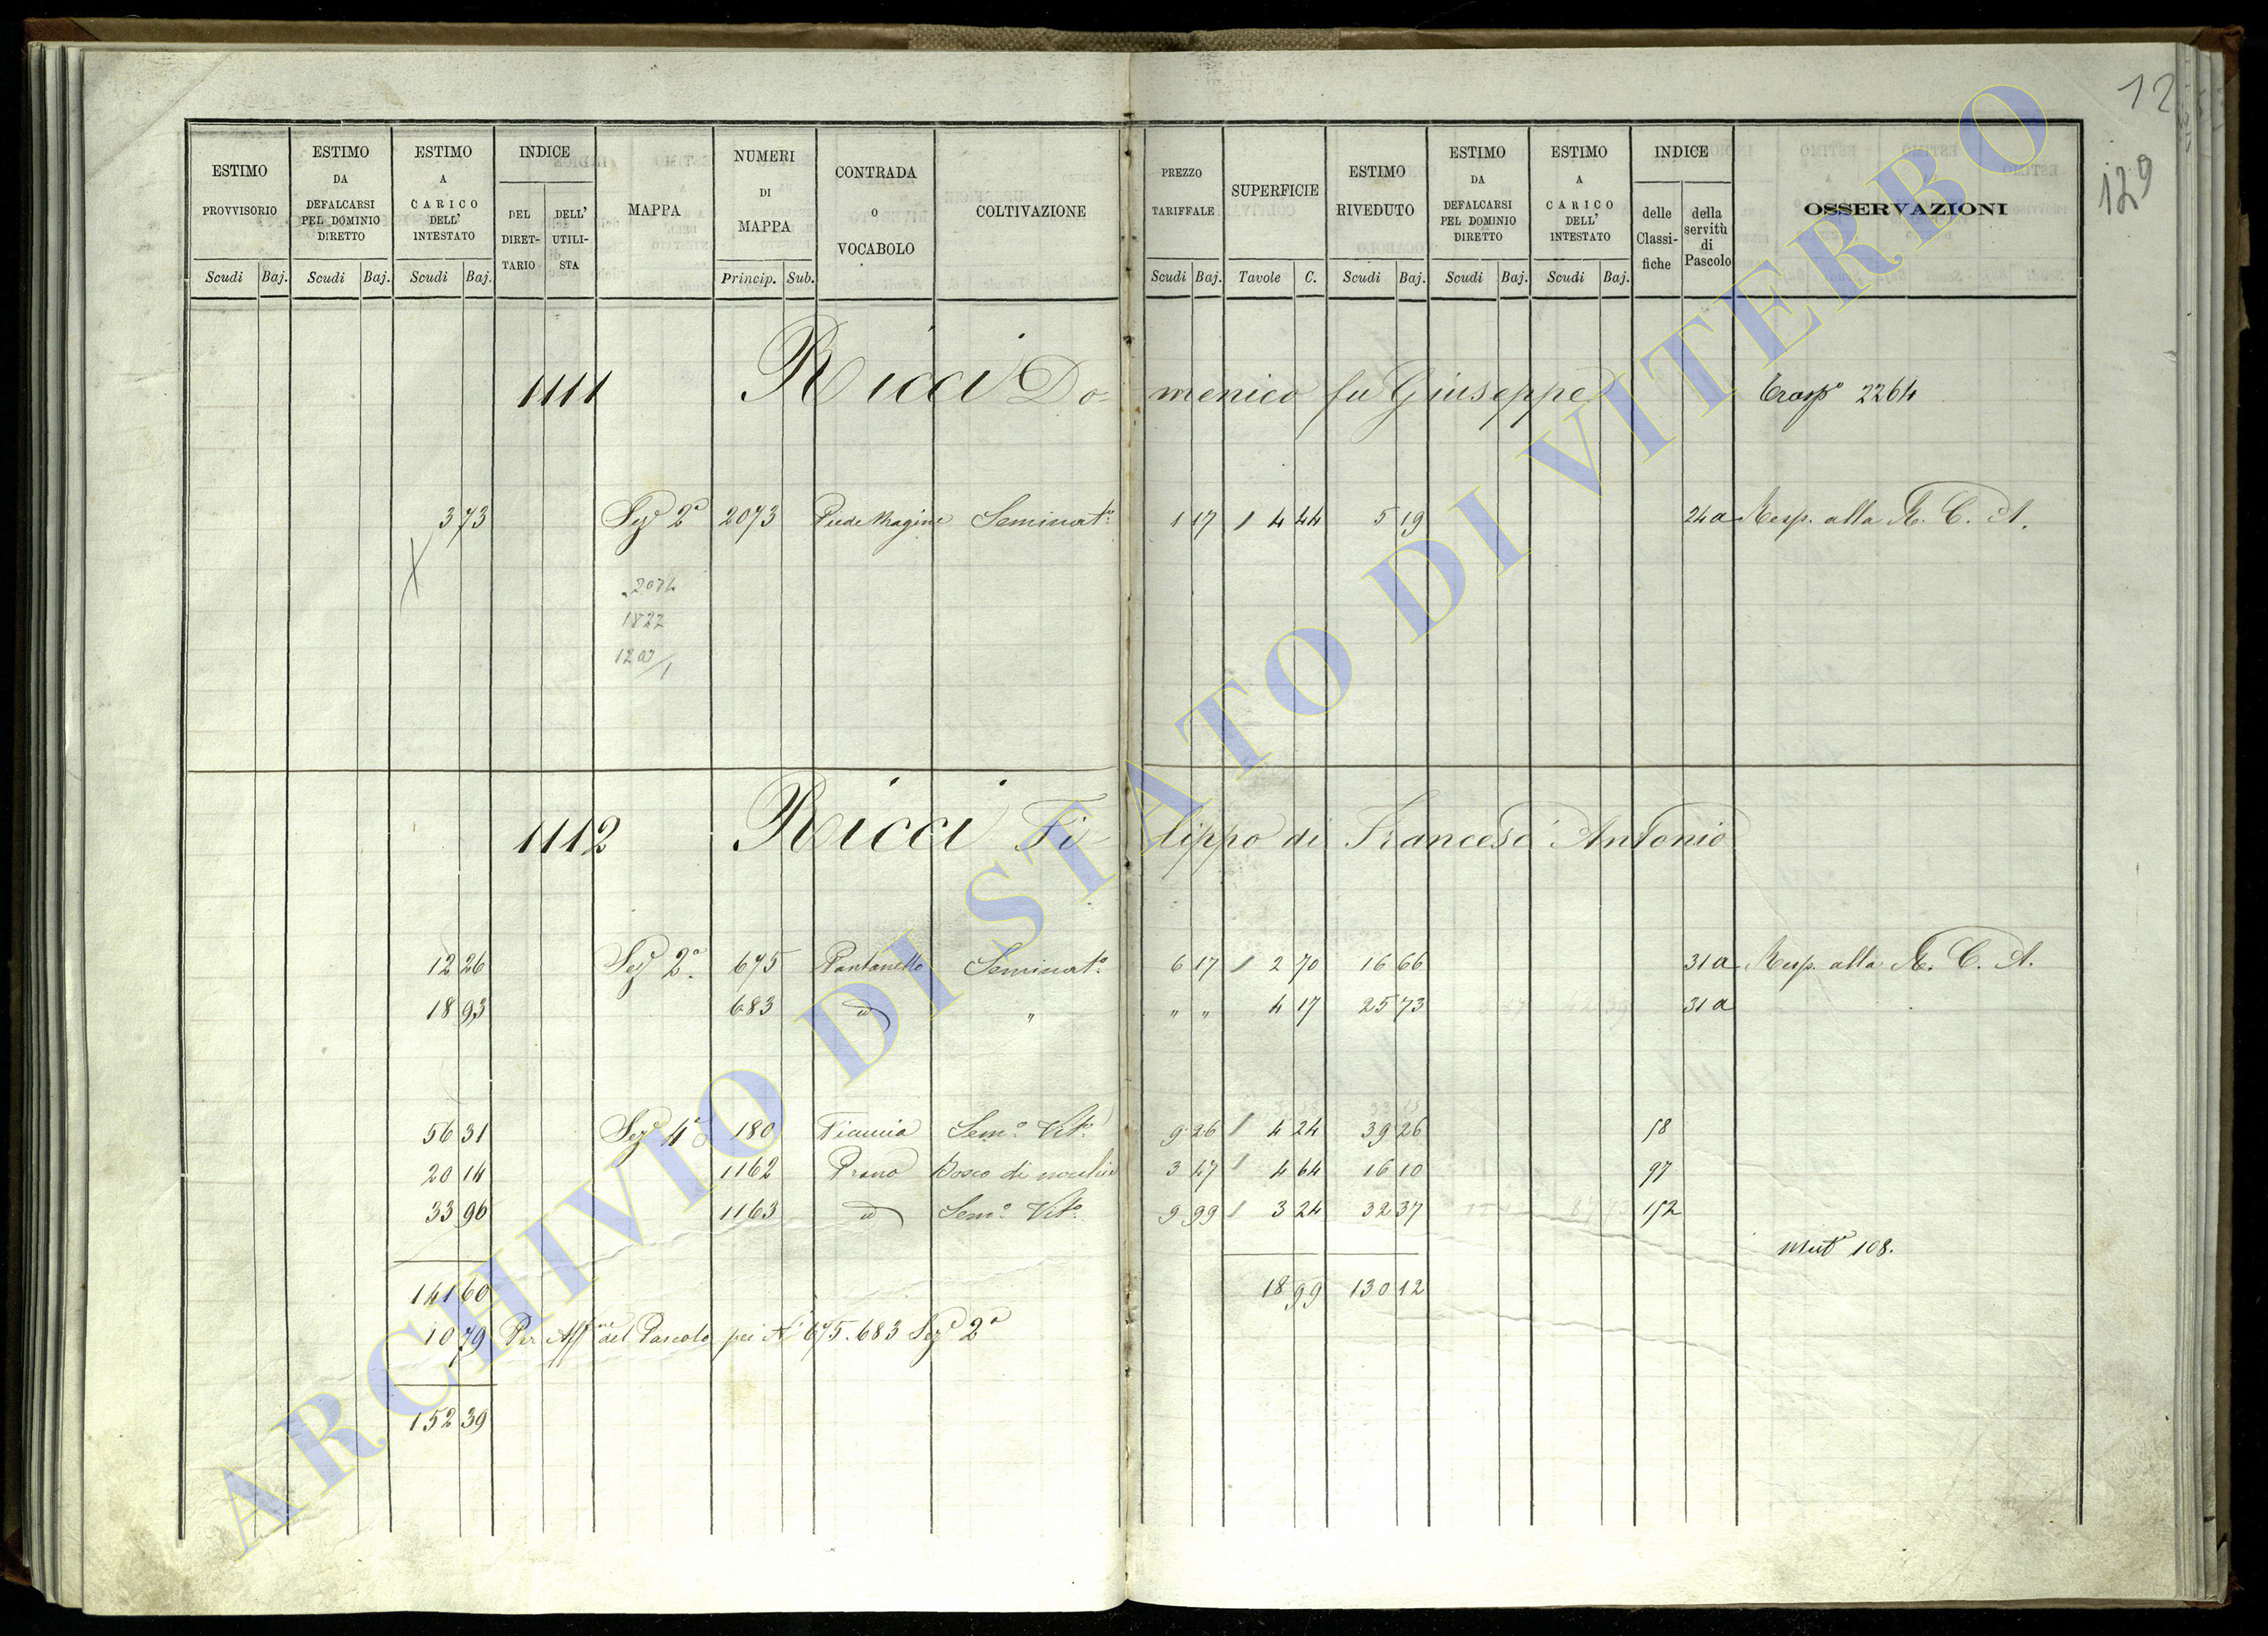 12
129
ESTIMO PROVVISORIO Scudi Baj.
ESTIMO DA DEFALCARSI PEL DOMINIO DIRETTO Scudi Baj.
ESTIMO A CARICO DELL' INTESTATO Scudi Baj.
INDICE DEL DIRET-TARIO DELL' UTILI-STA
MAPPA
NUMERI DI MAPPA Princip. Sub.
CONTRADA O VOCABOLO
COLTIVAZIONE
PREZZO TARIFFALE Scudi Baj.
SUPERFICIE Tavole C.
ESTIMO RIVEDUTO Scudi Baj.
ESTIMO DA DEFALCARSI PEL DOMINIO DIRETTO Scudi Baj.
ESTIMO A CARICO DELL' INTESTATO Scudi Baj.
INDICE delle Classi-fiche della servitù di Pascolo
OSSERVAZIONI
1111 Ricci Do-menico fu Giuseppe Trasp.o 2264
3 73 Sez.e 2a 2073 Seminat.o 1 17 1 4 44 5 19 24a Resp. alla R. C. A.
2074
1822
1112 Ricci Fi-lippo di Francesco Antonio
12 26 Sez.e 2a 675 Pantanello Seminat.o 6 17 1 2 70 16 66 31a Resp. alla R. C. A.
18 93 683 id " " " 4 17 25 73 31a
56 31 Sez.e 4a 180 Sem.o Vit.o 9 26 1 4 24 39 26 58
20 14 1162 Prano Bosco di 3 47 1 4 64 16 10 97
33 96 1163 id Sem.o Vit.o 9 99 1 3 24 32 37 152
Mut.a 108.
141 60 18 99 130 12
10 79 Per Aff.ne del Pascolo pei N.i 675. 683 Sez.e 2a
152 39
ARCHIVIO DI STATO DI VITERBO